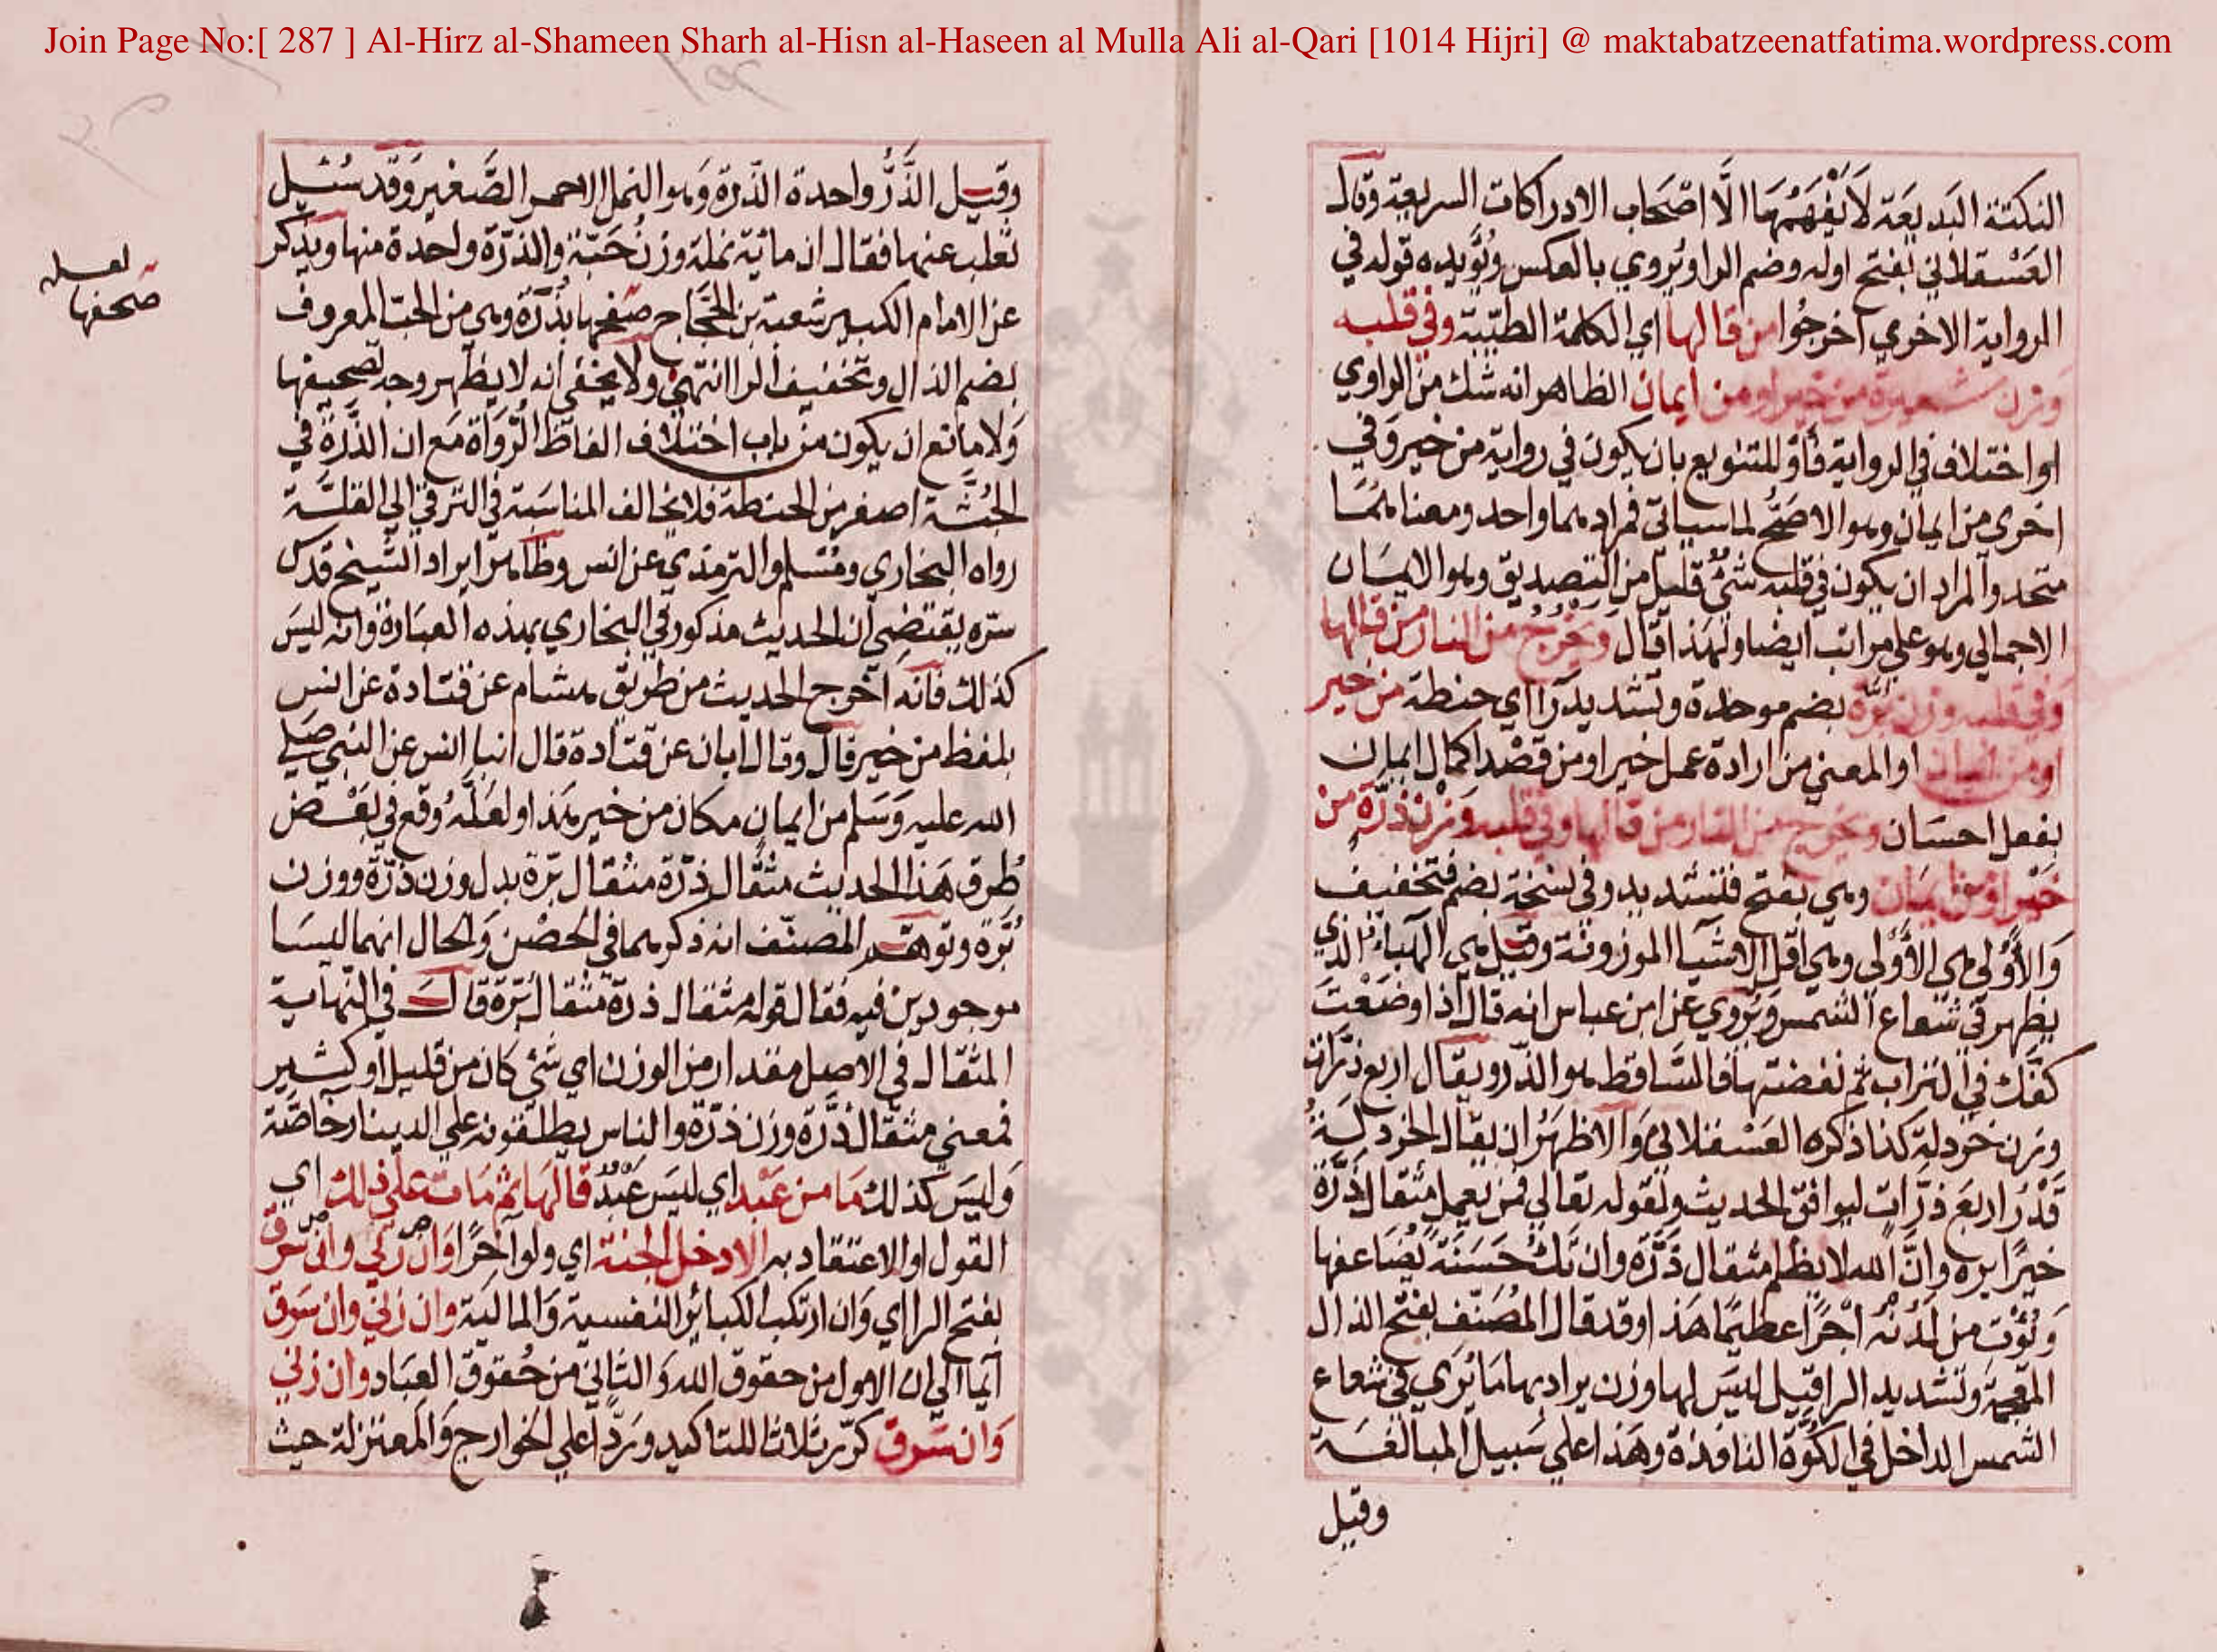 Join Page No:[ 287 ] Al-Hirz al-Shameen Sharh al-Hisn al-Haseen al Mulla Ali al-Qari [1014 Hijri] @ maktabatzeenatfatima.wordpress.com
النكتة البديعَة لاَ يَفْهَمُهَا الَّا اصْحَاب الادراكات السريعة وقال
العَسْقلاني بفتح اوله وضم الرا ويُروي بالعكس ويُؤيده قوله في
الرواية الاخري اخرجُوا من قالها اي الكلمة الطيّبة وفي قلبه
وزن شعيرة من خير او من ايمان الظاهر انه شك من الراوي
او اختلاف في الرواية فأو للتنويع بان يكون في رواية من خير وَفي
اخري من ايمان وهو الاصَحُّ لما سياتي فمرادهما واحد ومعناهمَا
متحد والمراد ان يكون في قلبه شئ قليل من التصديق وهو الايمان
الاجمالي وهو علي مراتب ايضا ولهذا قال وَيخرُج من النار من قالها
وفي قلبه وزن بُرّة بضم موحدة وتشديد رَا اي حنطة من خير
او من ايمان او المعني من ارادة عمل خير او من قصْد اكمال ايمان
بفعل احسَان ويخرج من النار من قالها وفي قلبه وَزن ذرّة من
خير او من ايمان وهي بفتح فتشديد وفي نسخة بضم فتخفيف
وَالأَوْلي هي الأُوْلى وهي اقل الاشيا الموزونة وقيل هي الهباء الذي
يظهر في شعاع الشمس وَيُروي عن ابن عباس انه قال اذا وضَعْتَ
كفك في التراب ثم نفضتها فالسَّاقط هو الذّر ويقال اربع ذرّات
وزن خردلة كذا ذكره العَسْقلاني وَالاظهَرُ ان يقال الخردلَةُ
قَدْرَ اربَع ذرَّاتٍ ليوافق الحديث ولقوله تعالي فمن يعمل مثقال ذَرَّة
خيرًا يره وانَّ الله لا يظلم مثقال ذَرَّة وان تكُ حَسَنَةً يُضَاعفها
وَيُؤْت من لدُنْهُ اجْرًا عظيمًا هَذا وقد قال المُصَنّف بفتح الذال
المعجمة وتشديد الرا قيل ليسَ لها وزن يراد بها مَا يُرَي في شعاع
الشمس الداخل في الكُوَّة النافذة وهَذا علي سَبيل المبالغَة
وقيل
وقيل الذَّرُّ واحدة الذّرة وَهو النمل الاحمر الصَّغير وَقد سُئيل
ثعلب عنها فقال ان مائة نملة وزنُ حَبّة والذرّة واحدة منها ويذكر
عن الامام الكبير شعبة بن الحَجّاج صَفحها بذُرَة وهي من الحبّ المعروف
بضم الذال وتخفيف الرا انتهي ولا يخفي انه لا يظهر وجه تصحيفها
وَلا مانع ان يكون من باب اختلاف الفاظ الرّوَاة مَع ان الذَّرَة في
الجُثَّة اصغر من الحنطة فلا يخالف المناسَبة في الترقي الي القلَّة
رواه البخاري ومُسْلم والترمذي عن انس وظاهر ايراد الشيخ قدس
سرّه يقتضِي ان الحديث مذكور في البخاري بهذه العبَارة وَانه ليسَ
كذلك فانه اخرج الحديث من طريق هشام عن قتادة عن انس
بلفظ من خير قال وقال ابان عن قتادة قال انبا انس عن النبي صَلي
الله عليه وَسَلم من ايمان مكان من خير هَذا ولعَلّه وقع في بَعْض
طُرق هَذا الحديث مثقال ذرّة مثقال برّة بدل وزن ذرّة ووزن
بُرَّة وتوهم المصنّف انه ذكرهما في الحصْن وَالحال انهما ليسَا
موجودين فيه فقال قوله مثقال ذرة مثقال بُرّة قال في النهاية
المثقال في الاصل مقدار من الوزن اي شئ كان من قليل او كثير
فمعني مثقال ذَرَّة وزن ذرّة والناس يطلقونه علي الدينار خاصَّة
وَليسَ كذلك مَا من عَبْد اي ليسَ عَبْدٌ قالهَا ثم مَات علي ذلك اي
القول او الاعتقاد به الا دخل الجنة اي ولو آخرًا وَان زني وان سَرق
بفتح الرا اي وَان ارتكب الكبائر النفسية وَالمالية وان زني وان سَرق
ايما الي ان الاول من حقوق الله وَالثاني من حُقوق العبَاد وان زني
وَان سَرق كرّر ثلاثا للتاكيد ورَدًّا علي الخوارج وَالمعتزلة حيث
لعله
صحفها